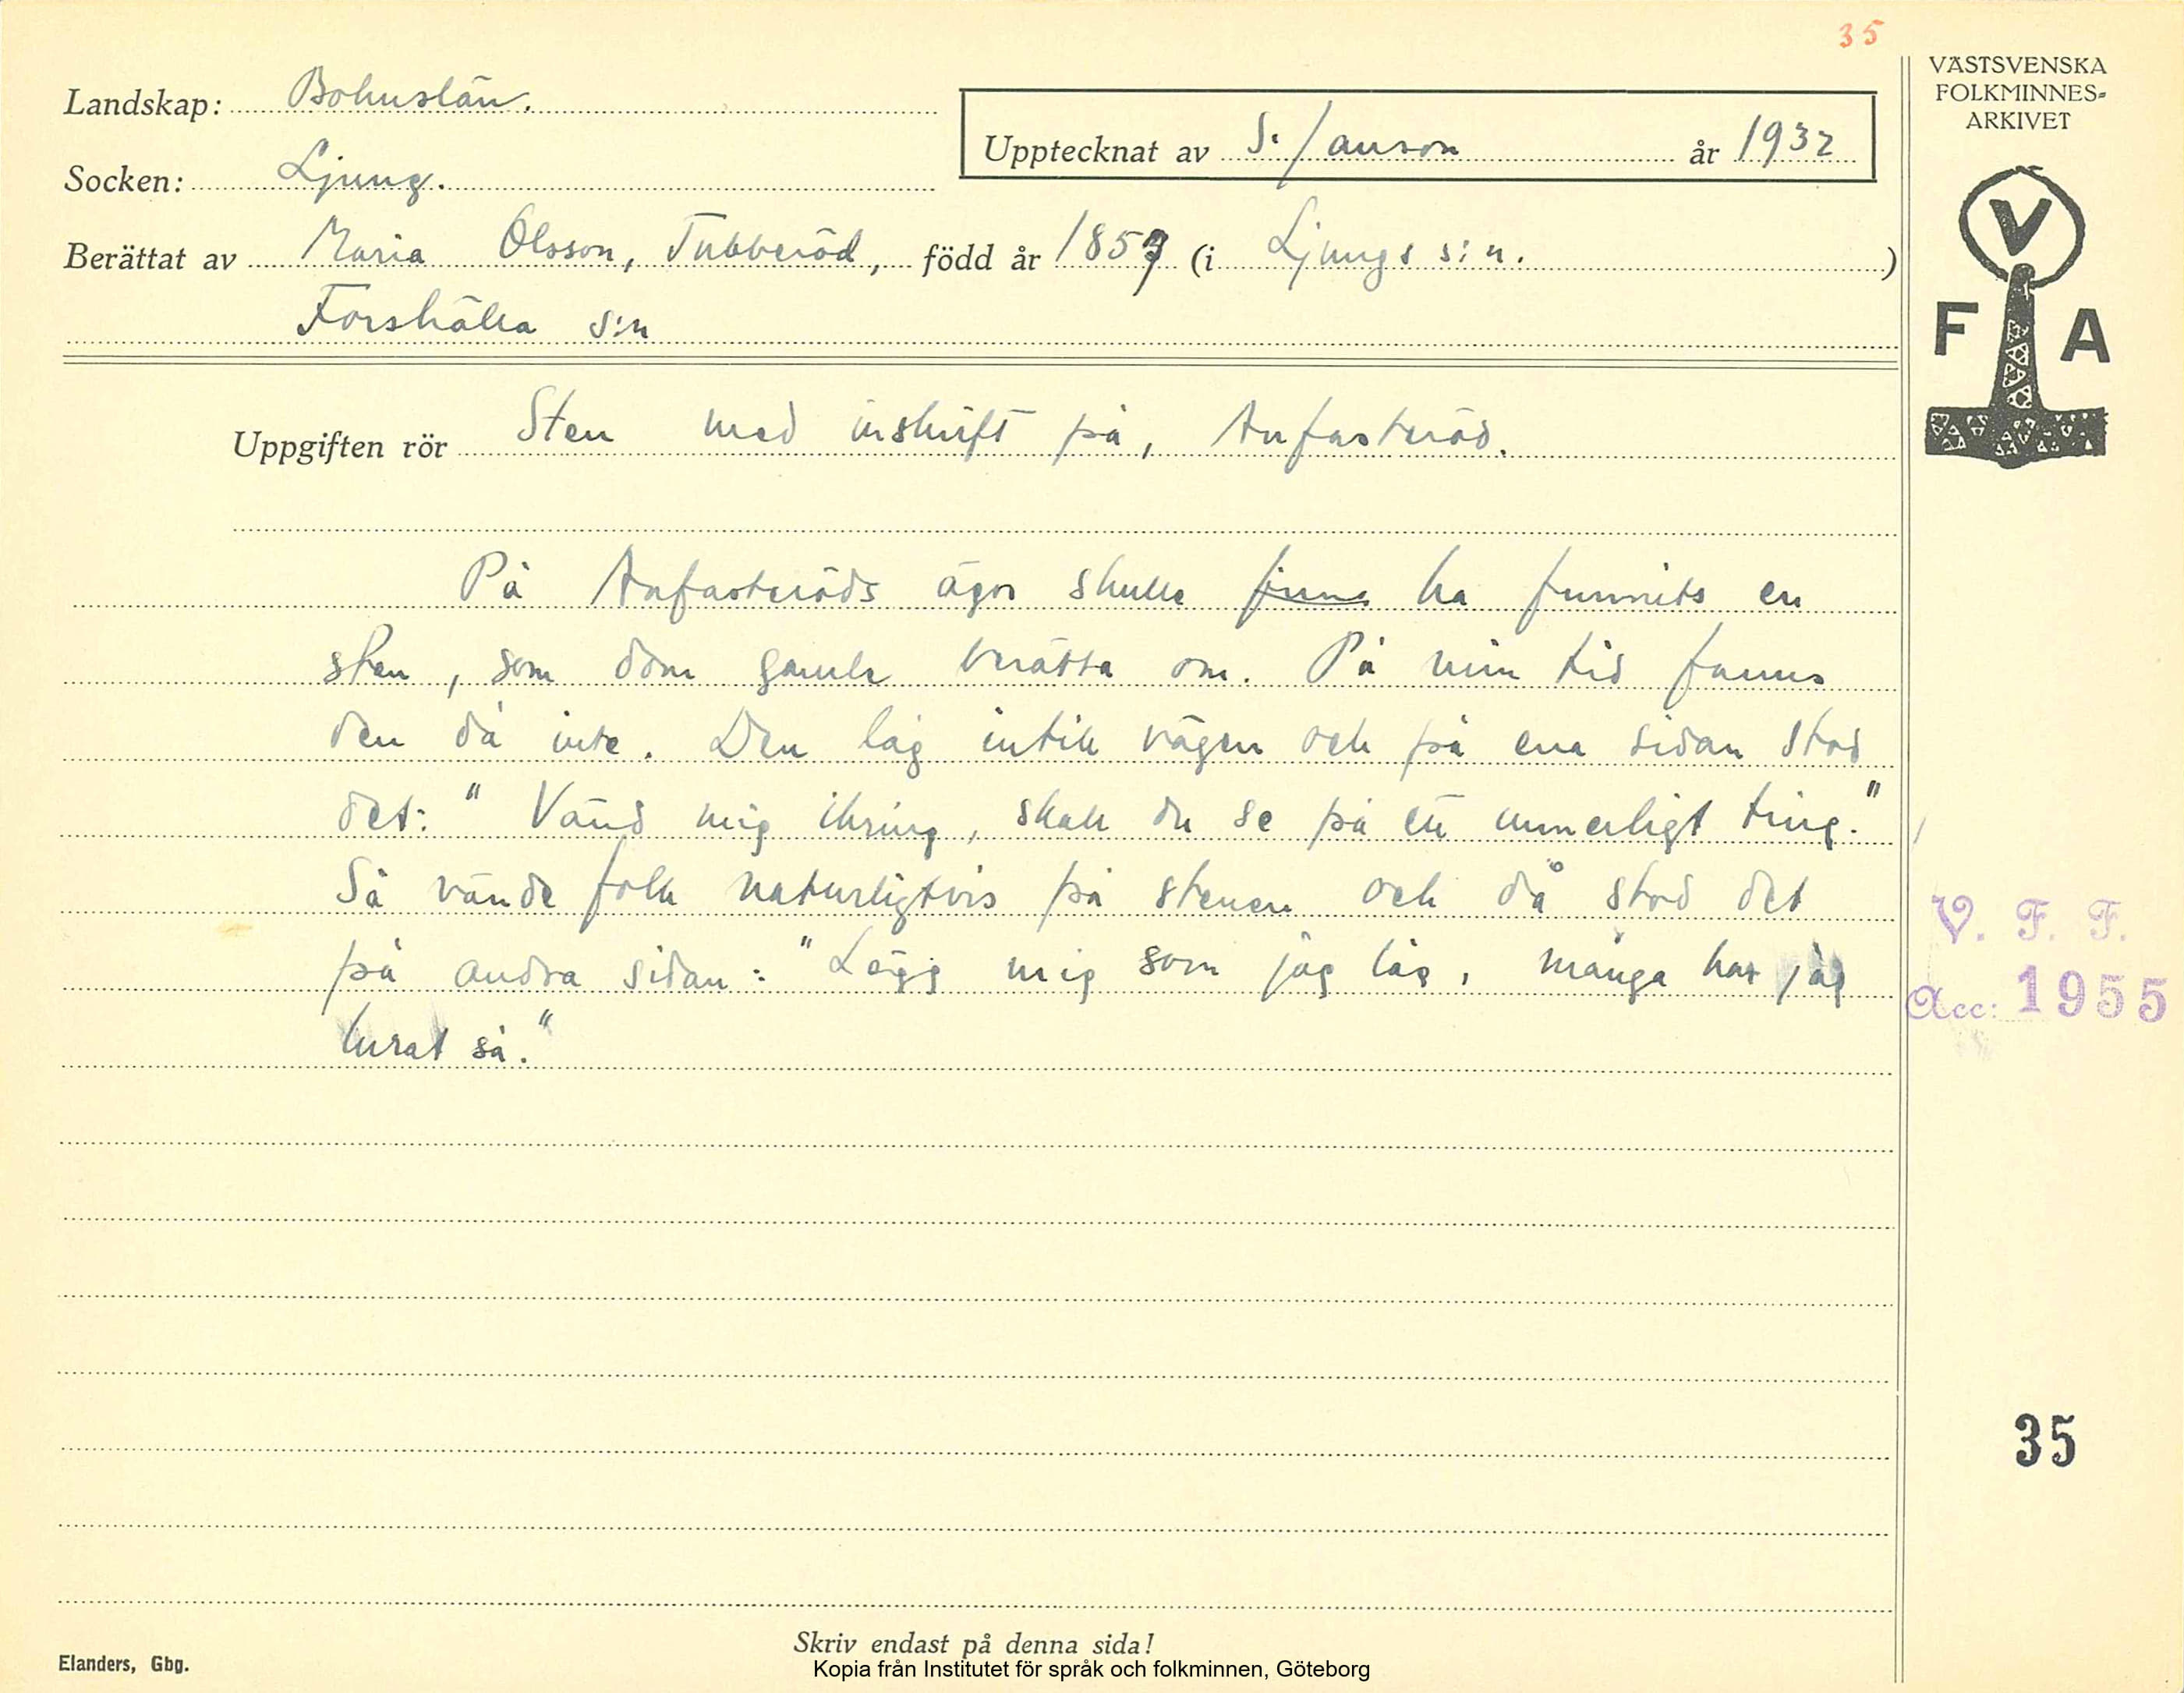 35
Landskap: Bohuslän.
Upptecknat av S. Janson år 1932
Socken: Ljung.
Berättat av Maria Olsson, Tubberöd, född år 1857 (i Ljungs s:n.)
Forshälla s:n
Uppgiften rör Sten med inskrift på, Anfasteröd.
På Anfasteröds ägor skulle finns ha funnits en
sten, som dom gamle berätta om. På min tid fanns
den då inte. Den låg intill vägen och på ena sidan stod
det: " Vänd mig ikring, skall du se på ett unnerligt ting."
Så vände folk naturligtvis på stenen och då stod det
på andra sidan: "Lägg mig som jag låg, många har jag
lurat så."
VÄSTSVENSKA
FOLKMINNES-
ARKIVET
V
F A
V. F. F.
Acc: 1955
35
Skriv endast på denna sida!
Elanders, Gbg.
Kopia från Institutet för språk och folkminnen, Göteborg